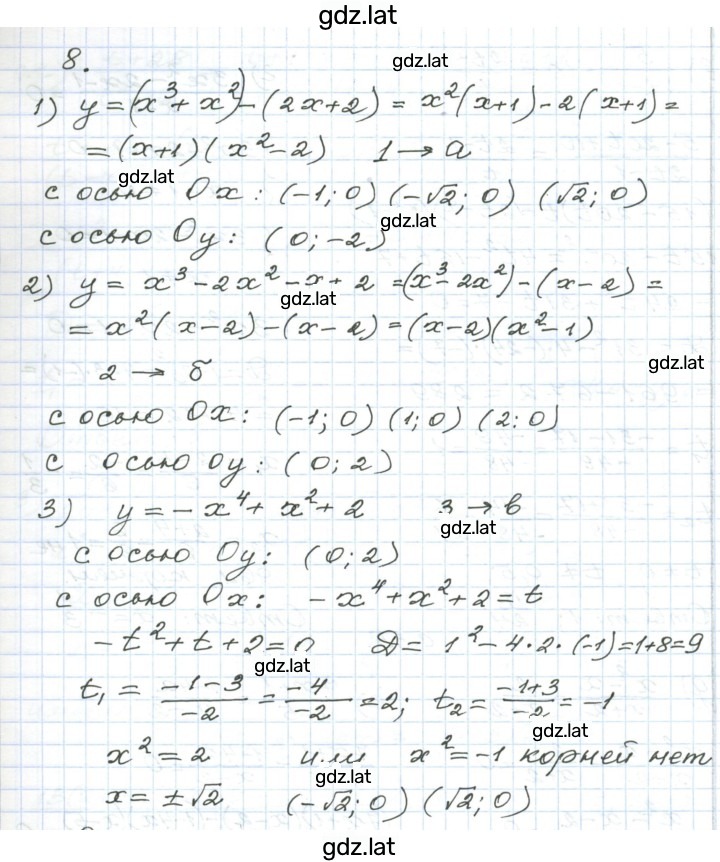 gdz.lat
8.
gdz.lat
1) y = (x³ + x²) - (2x+2) = x²(x+1) - 2(x+1) =
= (x+1)(x²-2) 1 → а
gdz.lat
с осью Ox: (-1; 0) (-√2; 0) (√2; 0)
gdz.lat
с осью Oy: (0; -2)
2) y = x³ - 2x² - x + 2 = (x³ - 2x²) - (x-2) =
gdz.lat
= x²(x-2) - (x-2) = (x-2)(x²-1)
gdz.lat
2 → б
с осью Ox: (-1; 0) (1; 0) (2; 0)
с осью Oy: (0; 2)
3) y = -x⁴ + x² + 2 3 → в
gdz.lat
с осью Oy: (0; 2)
с осью Ox: -x⁴ + x² + 2 = t
-t² + t + 2 = 0 D = 1² - 4·2·(-1) = 1+8 = 9
gdz.lat
t₁ = (-1-3)/(-2) = (-4)/(-2) = 2; t₂ = (-1+3)/(-2) = -1
gdz.lat
x² = 2 или x² = -1 корней нет
gdz.lat
x = ±√2 (-√2; 0) (√2; 0)
gdz.lat